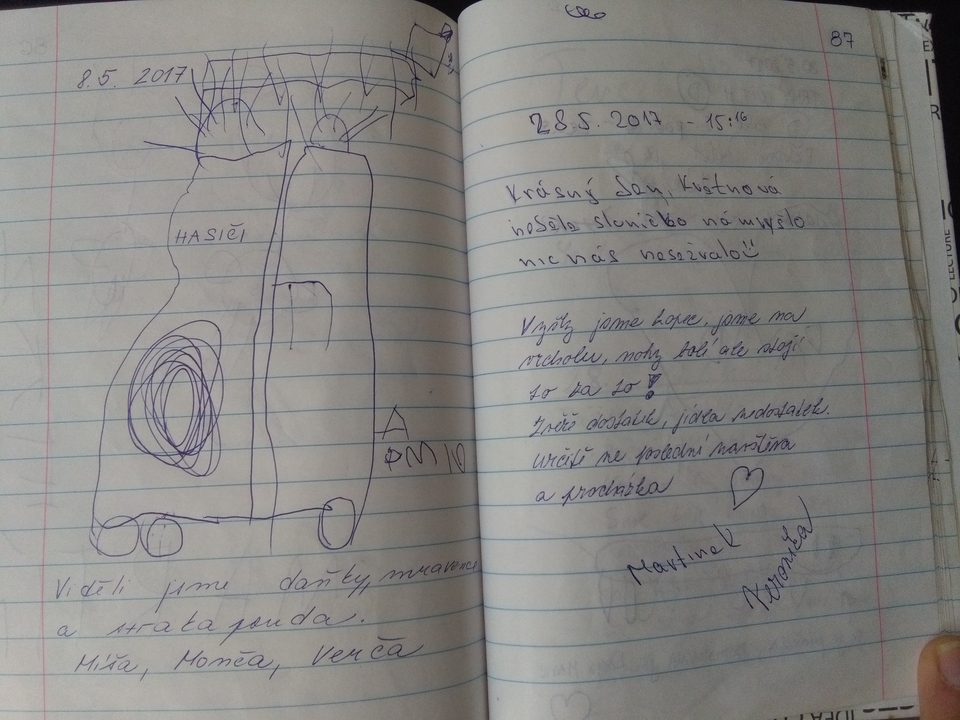 8.5. 2017
HASIČI
A
Viděli jsme daňky, mravence
a strakapouda.
Míša, Monča, Verča
87
28.5. 2017 - 15:16
Krásný den, Květnová
neděle sluníčko nám vyšlo
nic nás nesežralo
Vyšly jsme kopec, jsme na
vrcholu, nohy bolí ale stojí
to za to!
Zvěře dostatek, jídla nedostatek.
určitě ne poslední navštěva
a procházka
Martinek
Veronika